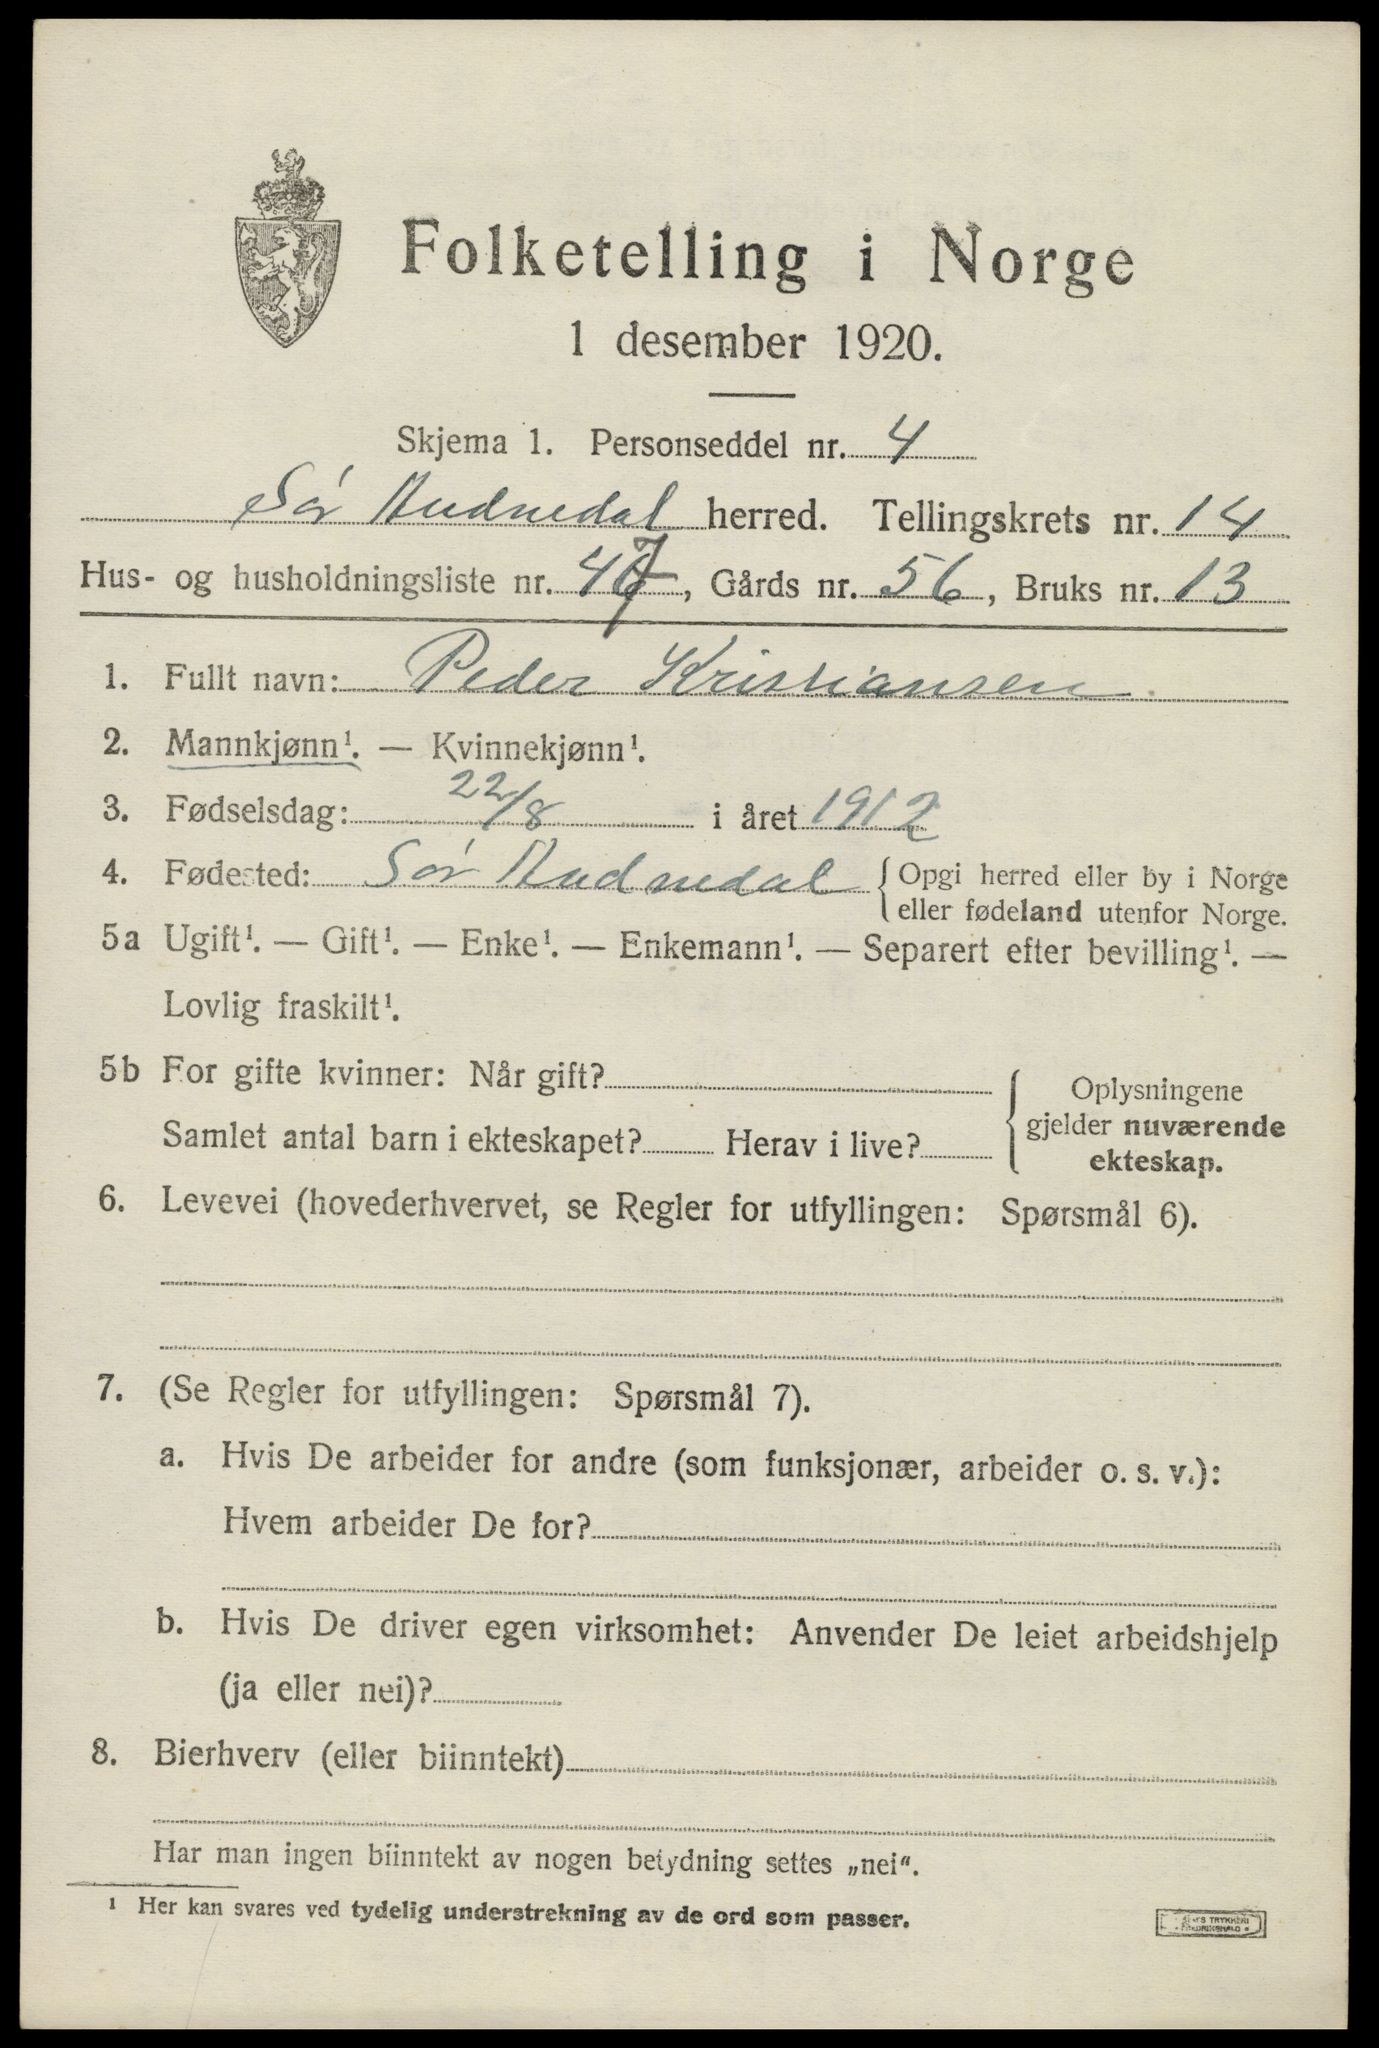 Folketelling i Norge
1 desember 1920.
Skjema 1. Personseddel nr. 4
Sør Audnedal herred. Tellingskrets nr. 14
Hus- og husholdningsliste nr. 47, Gårds nr. 56, Bruks nr. 13
1. Fullt navn: Peder Kristiansen
2. Mannkjønn¹. — Kvinnekjønn¹.
3. Fødselsdag: 22/8 i året 1912
4. Fødested: Sør Audnedal { Opgi herred eller by i Norge
eller fødeland utenfor Norge.
5a Ugift¹. — Gift¹. — Enke¹. — Enkemann¹. — Separert efter bevilling¹. —
Lovlig fraskilt¹.
5b For gifte kvinner: Når gift?
Samlet antal barn i ekteskapet? Herav i live?
{ Oplysningene
gjelder nuværende
ekteskap.
6. Levevei (hovederhvervet, se Regler for utfyllingen: Spørsmål 6).
7. (Se Regler for utfyllingen: Spørsmål 7).
a. Hvis De arbeider for andre (som funksjonær, arbeider o. s. v.):
Hvem arbeider De for?
b. Hvis De driver egen virksomhet: Anvender De leiet arbeidshjelp
(ja eller nei)?
8. Bierhverv (eller biinntekt)
Har man ingen biinntekt av nogen betydning settes „nei“.
¹ Her kan svares ved tydelig understrekning av de ord som passer.
TRYKKERI
FREDRIKSHALD